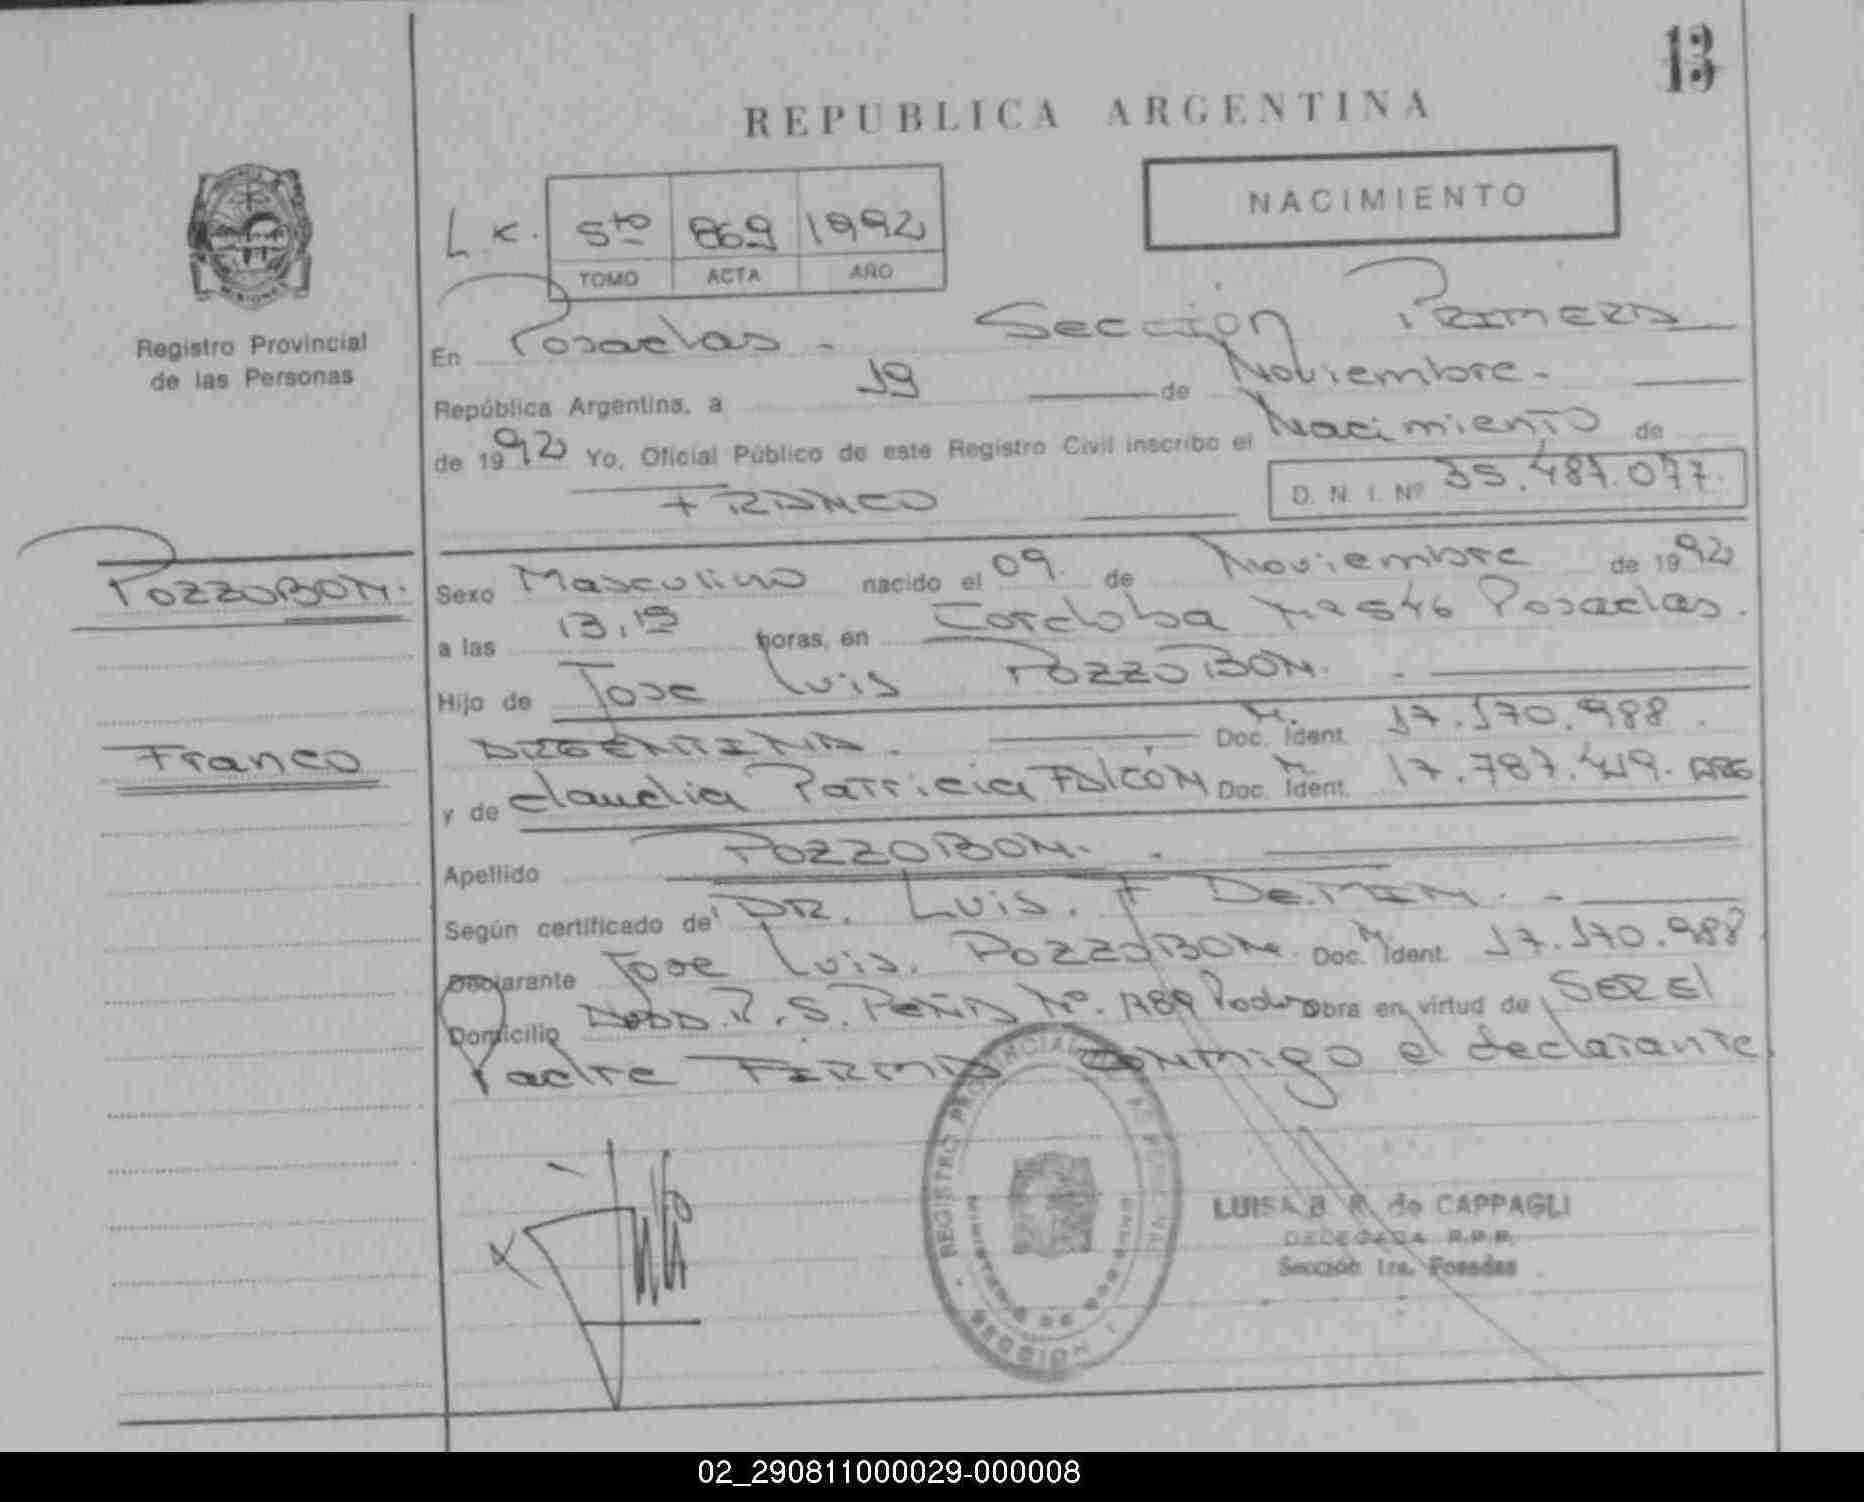 13
REPUBLICA ARGENTINA
NACIMIENTO
L. K. 5to 869 1992
TOMO ACTA AÑO
Registro Provincial
de las Personas
En Posadas - Sección PRIMERA
República Argentina, a 19 de Noviembre.
de 1992 Yo, Oficial Público de este Registro Civil inscribo el Nacimiento de
FRANCO D. N. I. Nº 35.487.077.
POZZOBON.
Sexo Masculino nacido el 09. de Noviembre de 1992
a las 13,15 horas, en Cordoba Nº 546 Posadas.
Hijo de Jose Luis POZZOBON.
Franco
ARGENTINA. Doc. M. Ident. 17.170.988.
y de Claudia Patricia FALCÓN Doc. M. Ident. 17.787.419. ARG
Apellido POZZOBON.
Según certificado de DR. Luis. F DeMIN.
Declarante Jose Luis. POZZOBON. Doc. M. Ident. 17.170.988
Domicilio R. S. PEÑA Nº. obra en virtud de SER El
Padre FIRMA CONMIGO el declarante
REGISTRO PROVINCIAL DE LAS PERSONAS
MINISTERIO DE GOBIERNO
SECCION 1
LUISA B. R. de CAPPAGLI
DELEGADA R.P.P.
Sección 1ra. Posadas
02_290811000029-000008